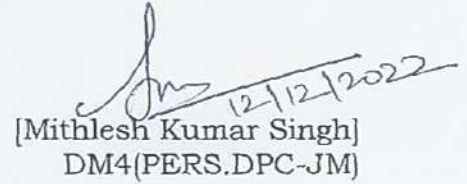 12/12/2022
[Mithlesh Kumar Singh]
DM4(PERS.DPC-JM)